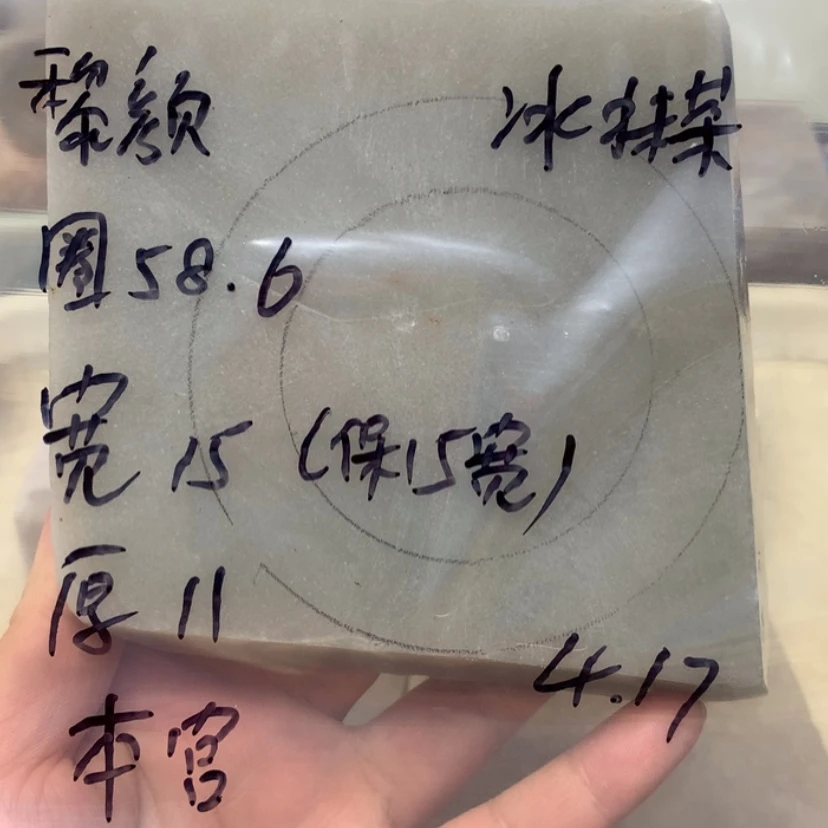 黎颜
冰抹菜
圈58.6
宽 15 (保15宽)
厚 11
4.17
本宫